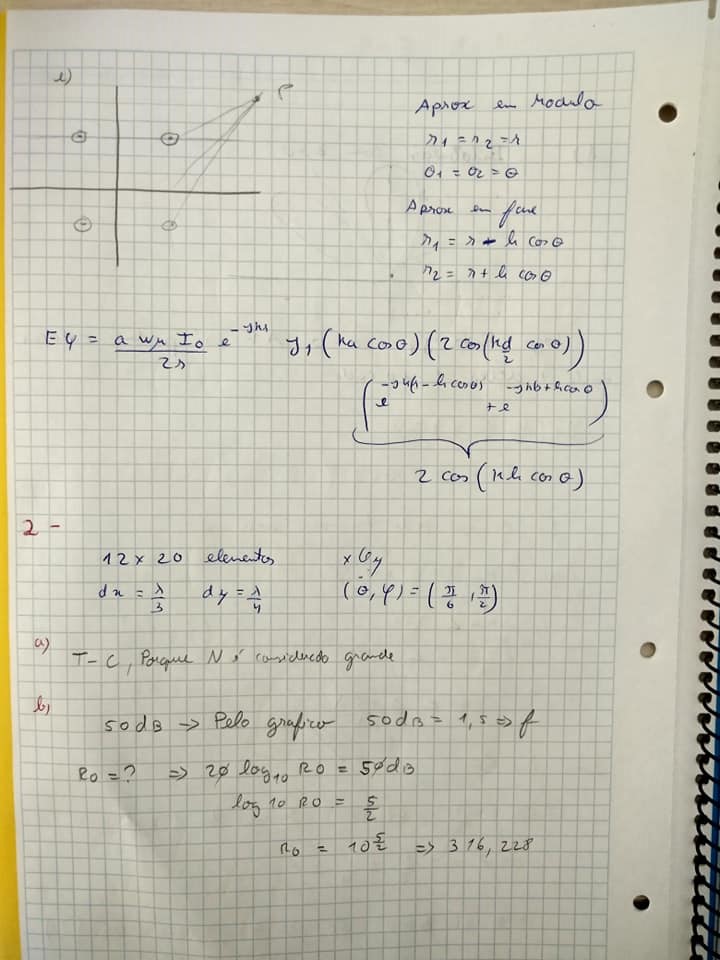 e)
P
Aprox em Modulo
r1 = r2 = r
θ1 = θ2 = θ
Aprox em fase
r1 = r - h cos θ
r2 = r + h cos θ
Eφ = a ωμ I0 / 2r e^-jkr J1 (ka cos θ) (2 cos(kd/2 cos θ))
(e^-jk(r-h cos θ) + e^-jk(r+h cos θ))
2 cos (kh cos θ)
2 -
12 x 20 elementos x Oy
dx = λ/3 dy = λ/4 (θ, φ) = (π/6, π/2)
a) T-C, Porque N é considerado grande
b)
50 dB → Pelo grafico 50 dB = 1,5 => f
R0 = ? => 20 log10 R0 = 50 dB
log10 R0 = 5/2
R0 = 10^5/2 => 316,228